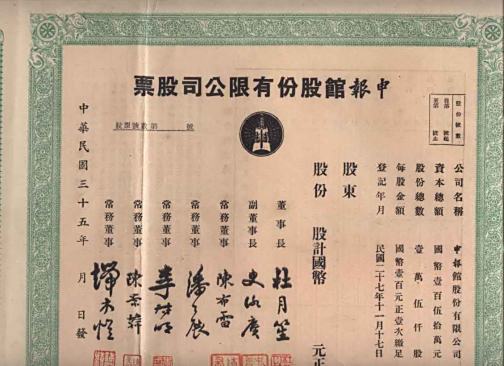 申報館股份有限公司股票
股份號數
自第 號起
至第 號止
公司名稱 申報館股份有限公司
資本總額 國幣壹百伍拾萬元
股份總數 壹萬伍仟股
每股金額 國幣壹百元正壹次繳足
登記年月 民國二十七年十一月十七日
股東
股份 股計國幣 元正
股票號數第 號
董事長 杜月笙
副董事長 史詠賡
常務董事 陳布雷
常務董事 潘公展
常務董事
常務董事 陳景韓
常務董事
中華民國三十五年 月 日發